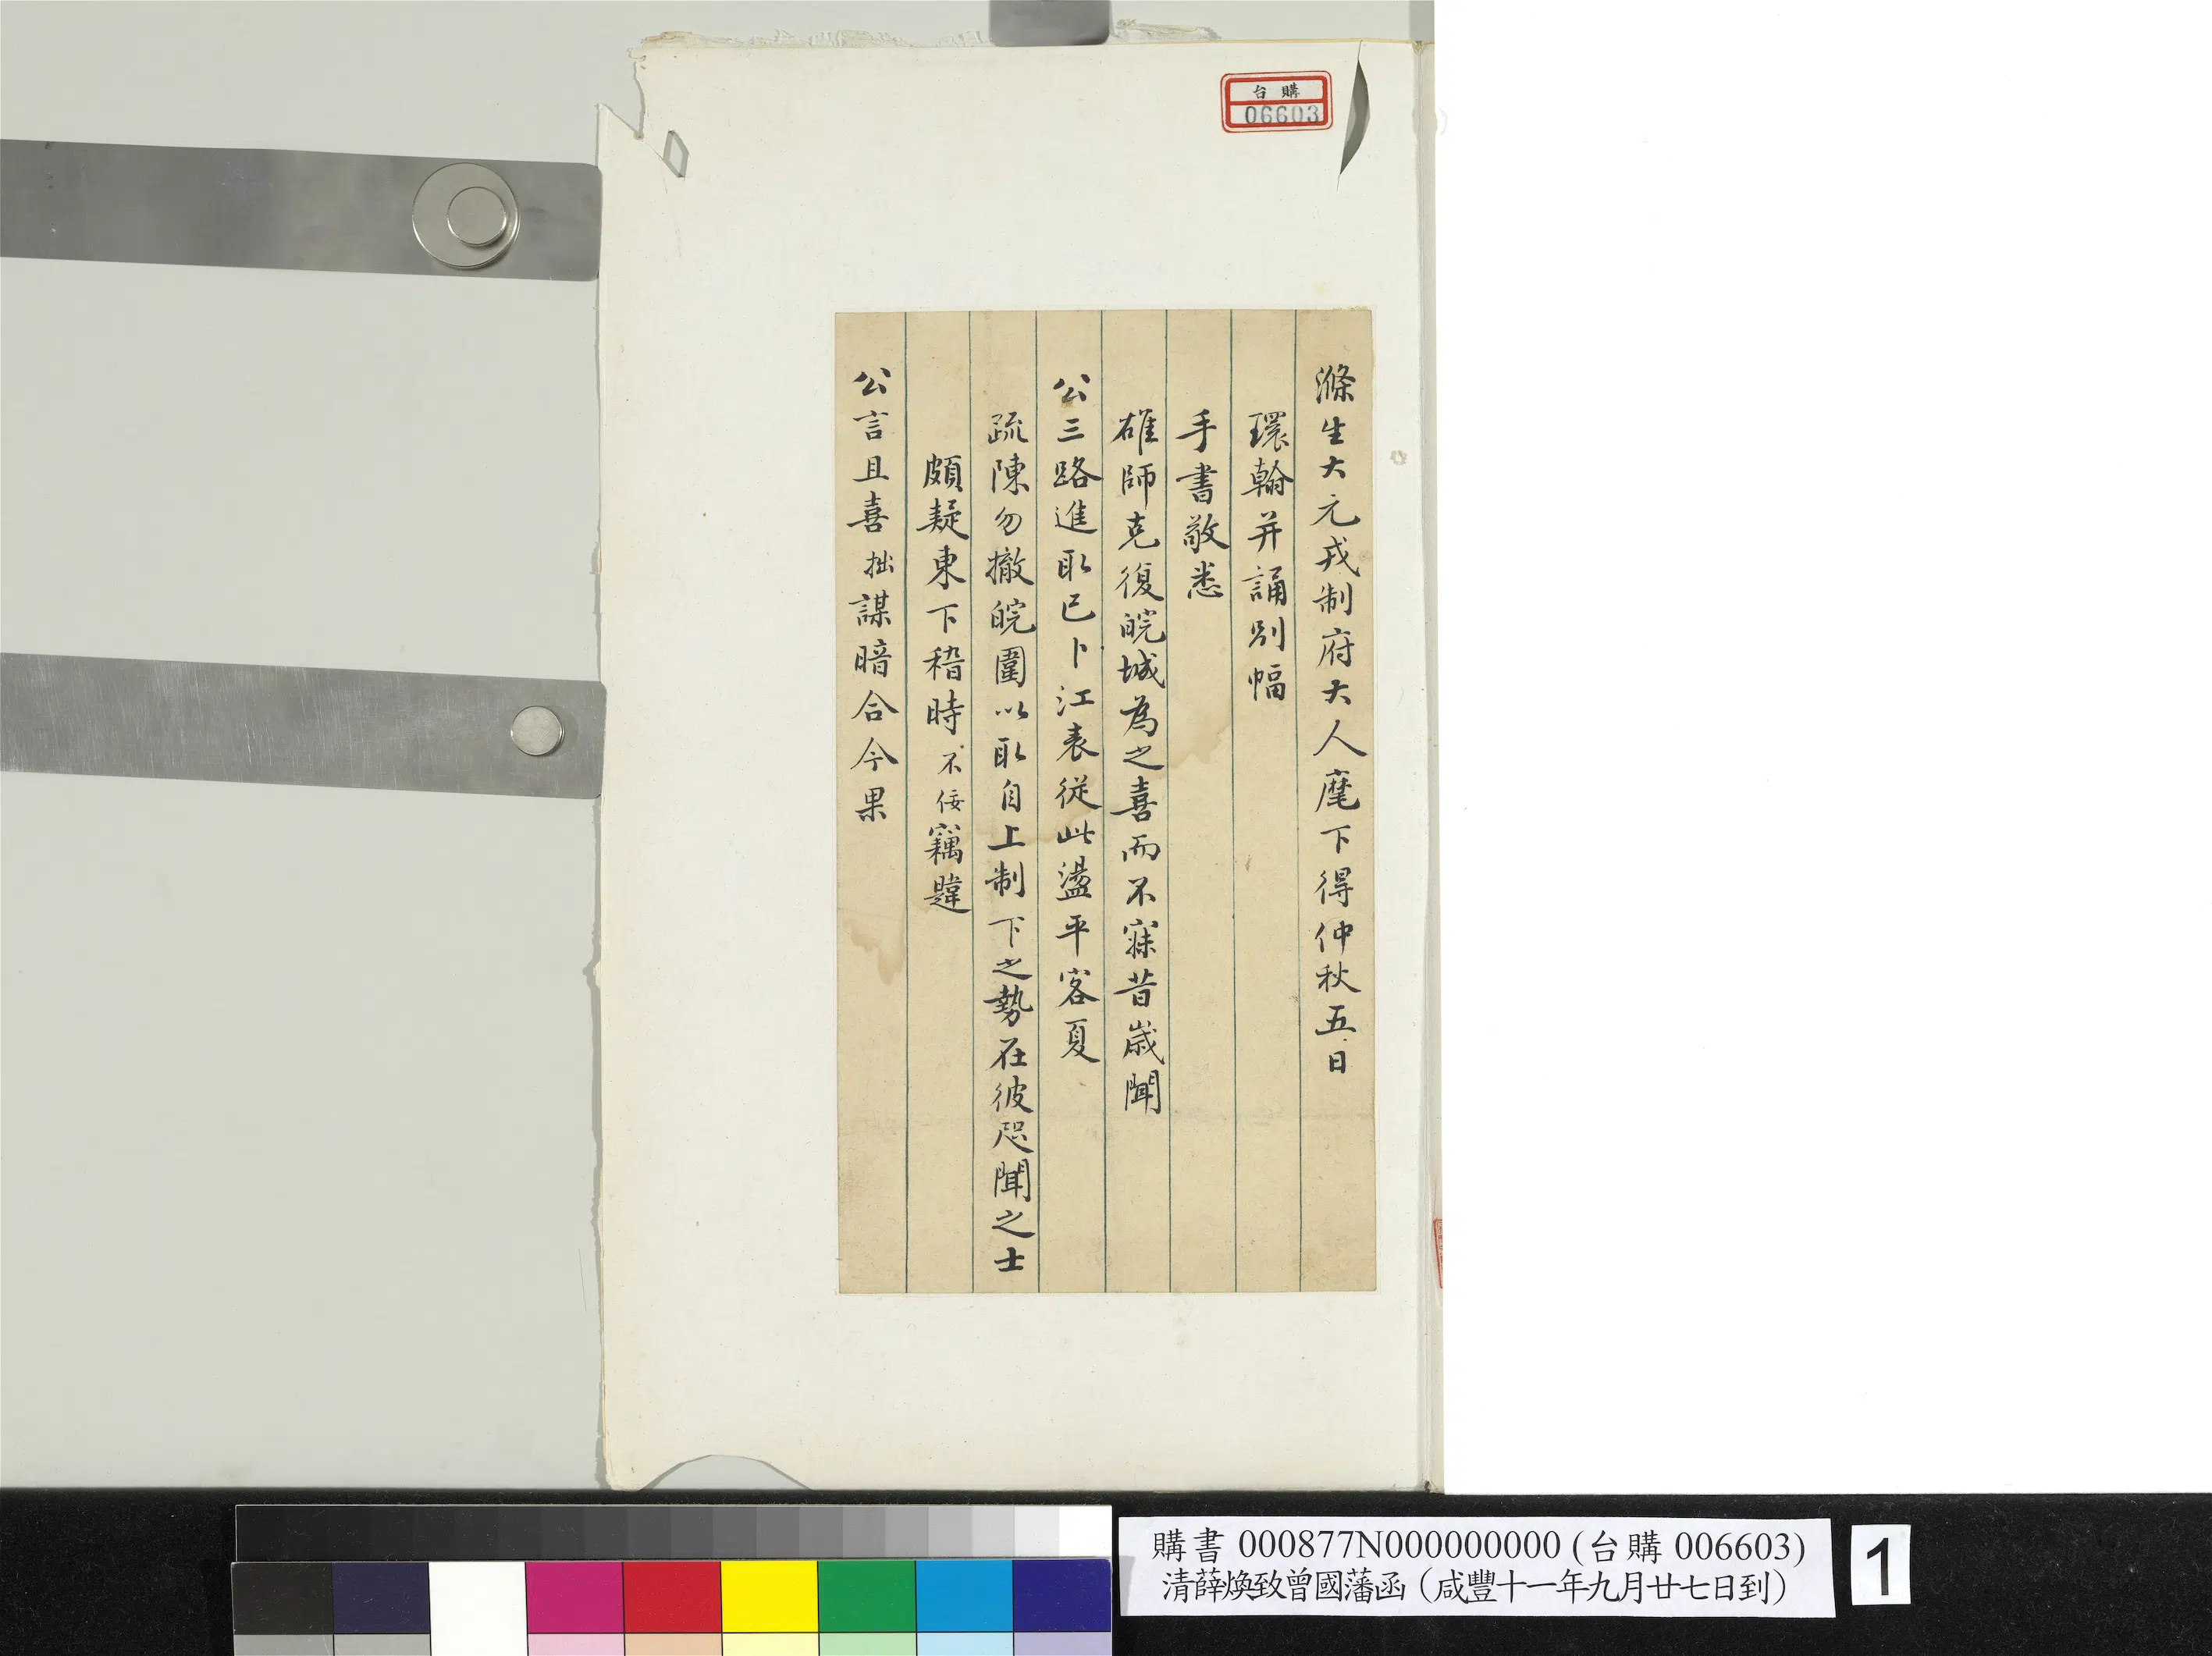 台購
06603
滌生大元戎制府大人麾下得仲秋五日
環翰并誦別幅
手書敬悉
雄師克復皖城為之喜而不寐昔歲聞
公三路進取已卜江表從此盪平客夏
疏陳勿撤皖圍以取自上制下之勢在彼咫聞之士
頗疑東下稽時不佞竊韙
公言且喜拙謀暗合今果
購書 000877N000000000 (台購 006603)
清薛煥致曾國藩函（咸豐十一年九月廿七日到）
1